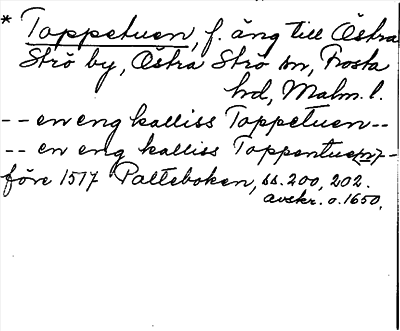 * Toppetuen, f. äng till Östra
Strö by, Östra Strö sn, Frosta
hd, Malm. l.
-- en eng kalliss Toppetuen --
-- en eng kalliss Toppentue(n) --
före 1517 Palteboken, ss. 200, 202.
avskr. o. 1650.